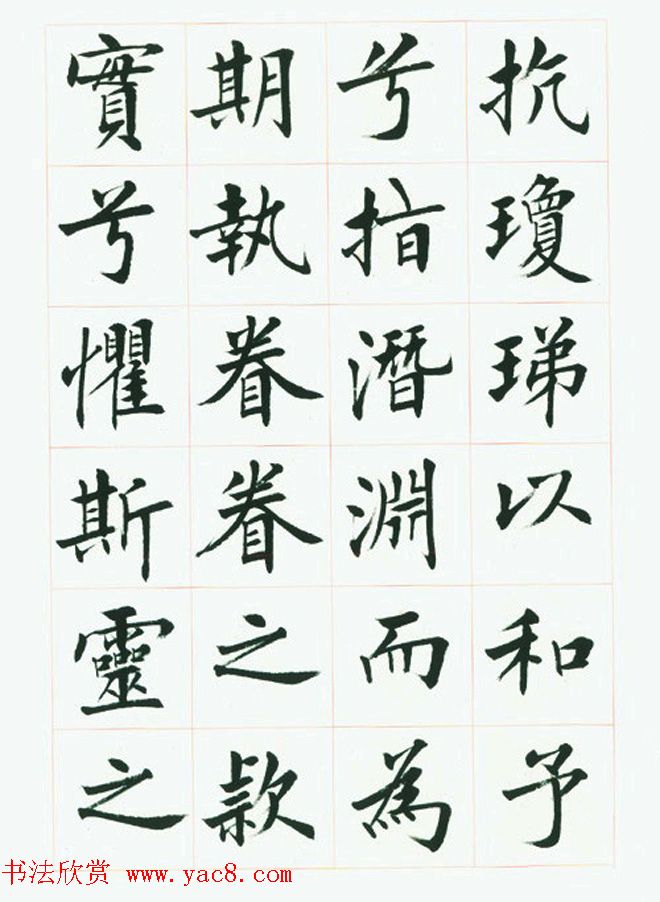 抗瓊珶以和予
兮指潜淵而為
期執眷眷之款
實兮懼斯靈之
书法欣赏 www.yac8.com